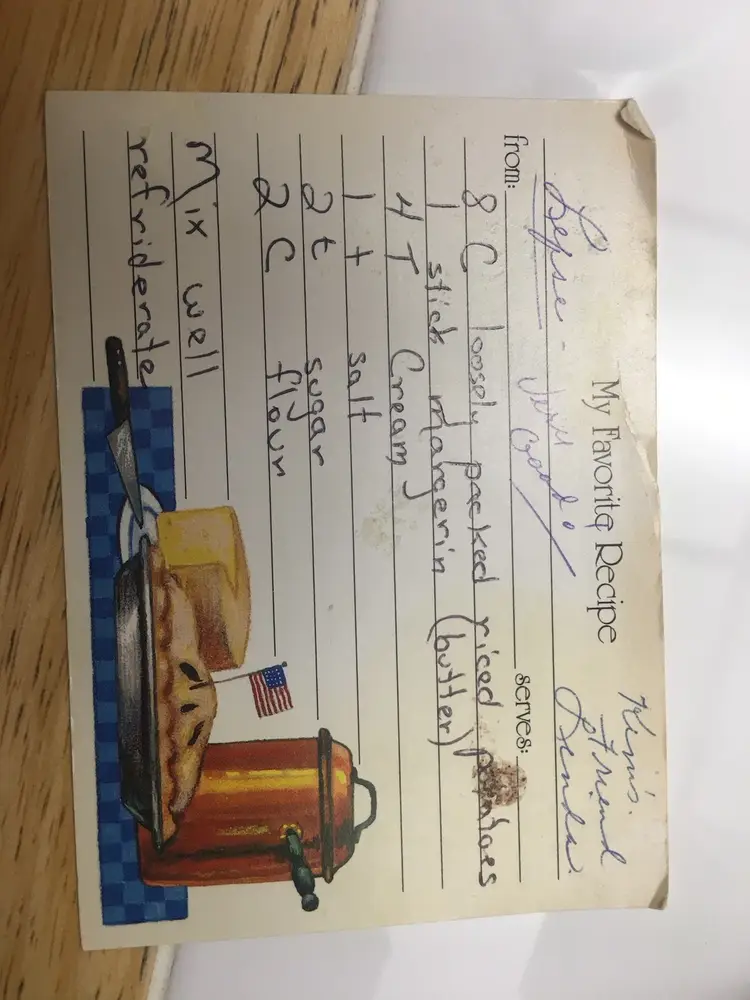 My Favorite Recipe
Kim's
friend
Linda
Lefse - Very Good!
from:
serves:
8 C loosely packed riced potatoes
1 stick margerin (butter)
4 T Cream
1 t salt
2 t sugar
2 C flour
Mix well
refriderate